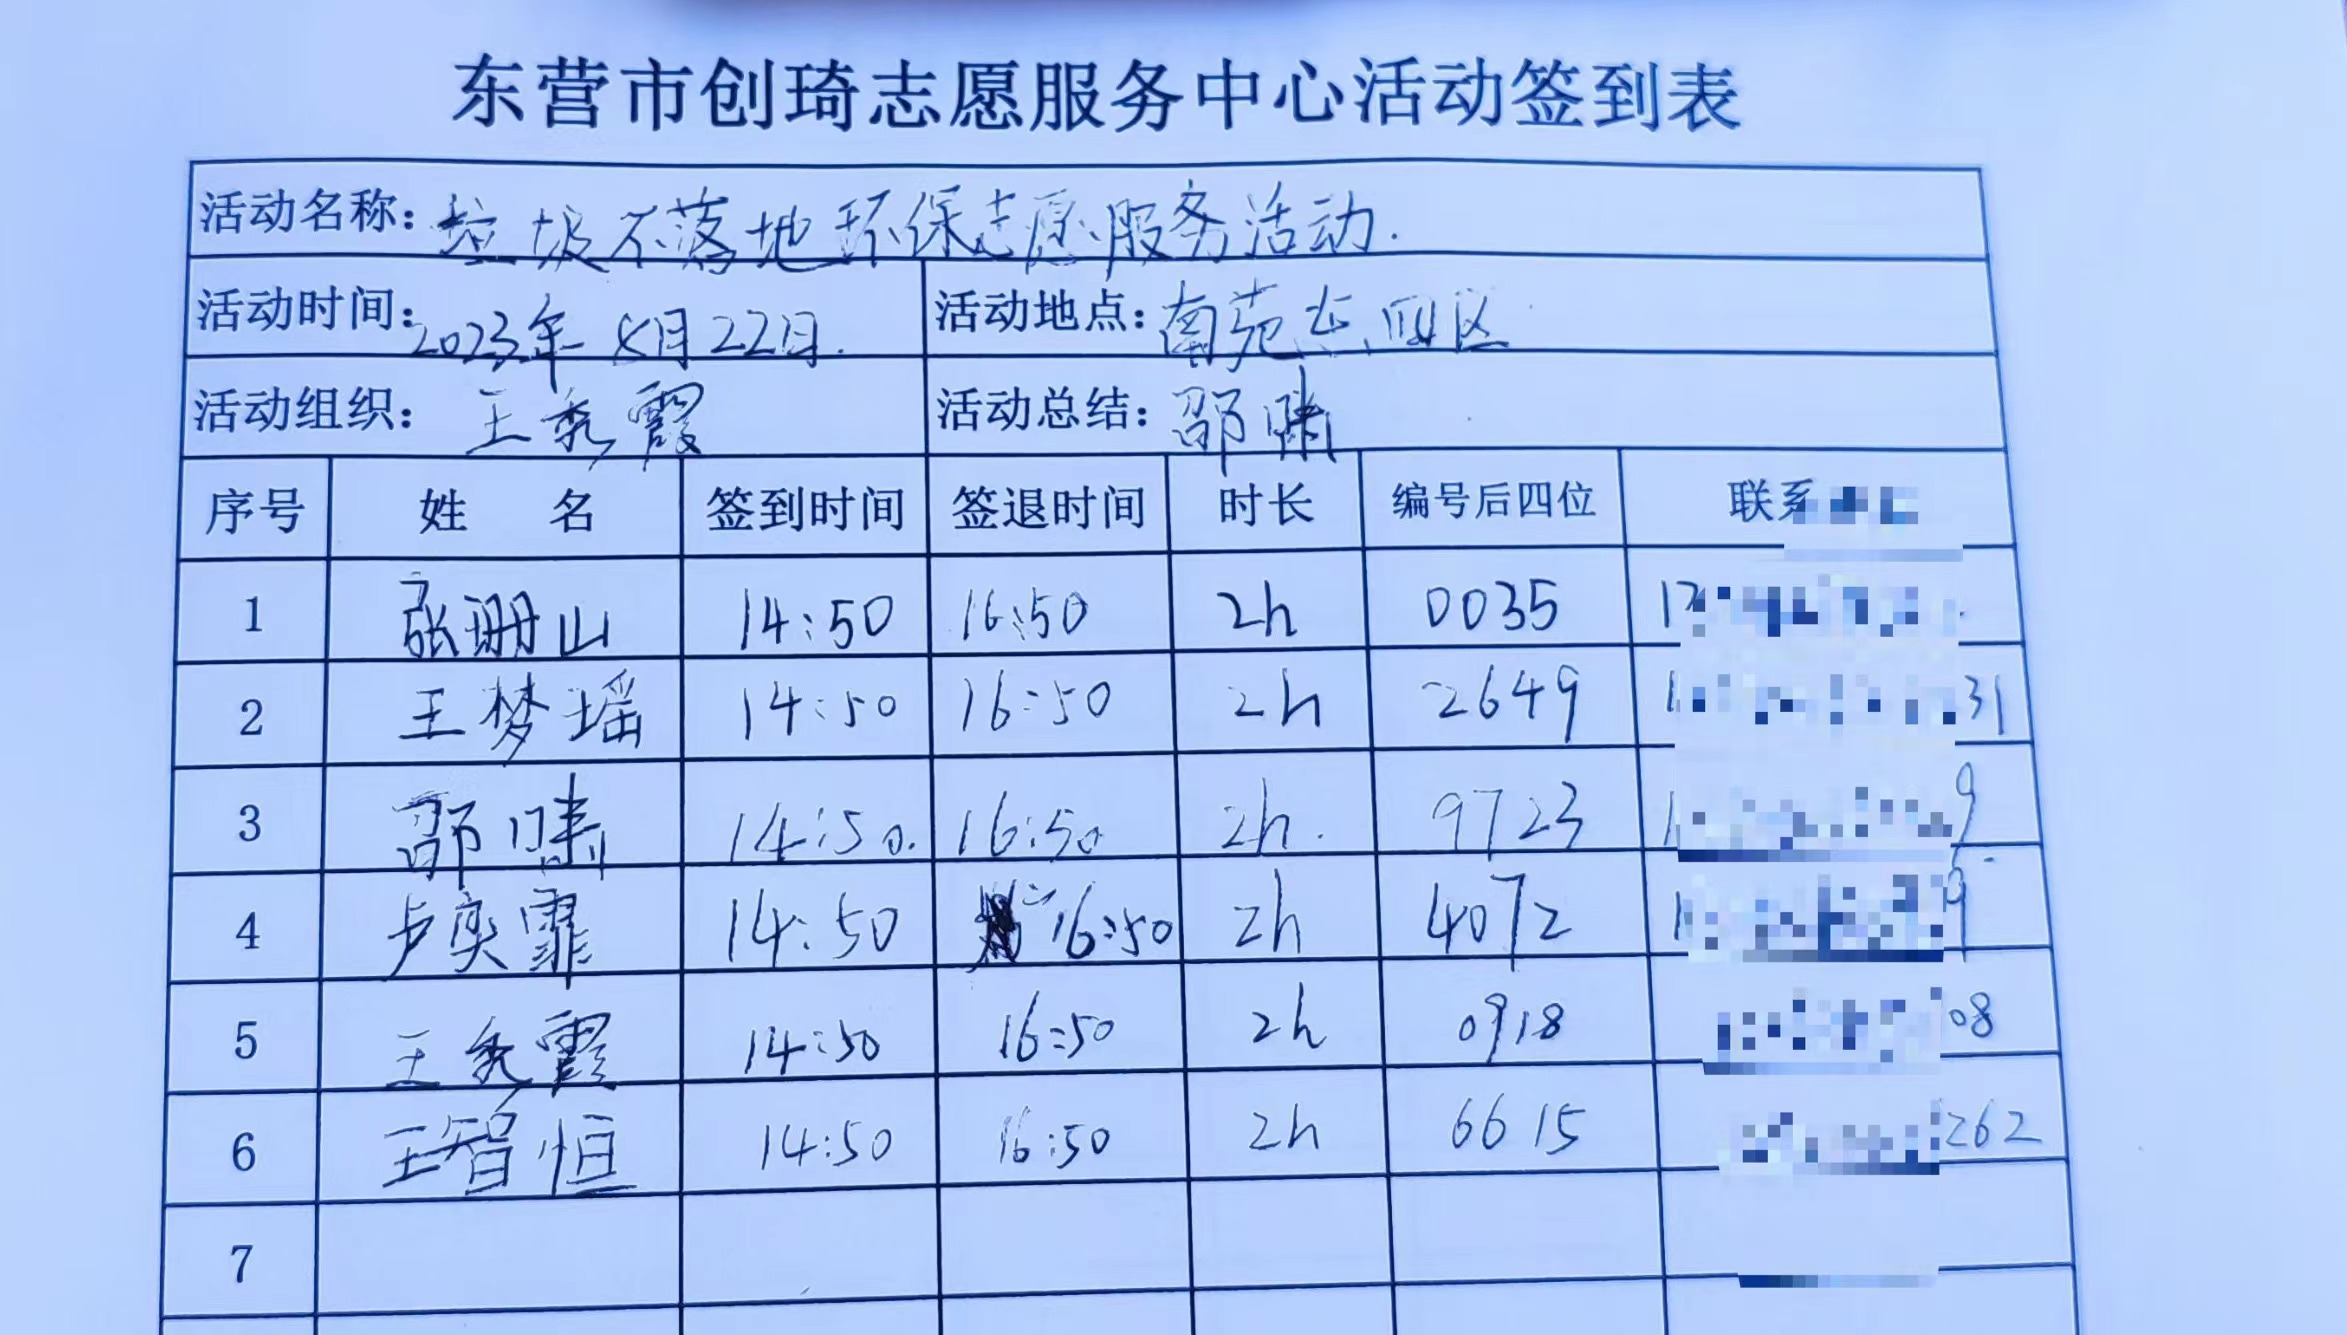 东营市创琦志愿服务中心活动签到表
活动名称：垃圾不落地环保志愿服务活动.
活动时间：2023年8月22日. 活动地点：南苑东四区
活动组织：王秀霞 活动总结：邵啸
序号 姓 名 签到时间 签退时间 时长 编号后四位 联系
1 张珊山 14:50 16:50 2h 0035
2 王梦瑶 14:50 16:50 2h 2649 31
3 邵啸 14:50. 16:50 2h. 9723 9
4 卢奕霏 14:50 16:50 2h 4072 9
5 王秀霞 14:50 16:50 2h 0918 08
6 王智恒 14:50 16:50 2h 6615 262
7